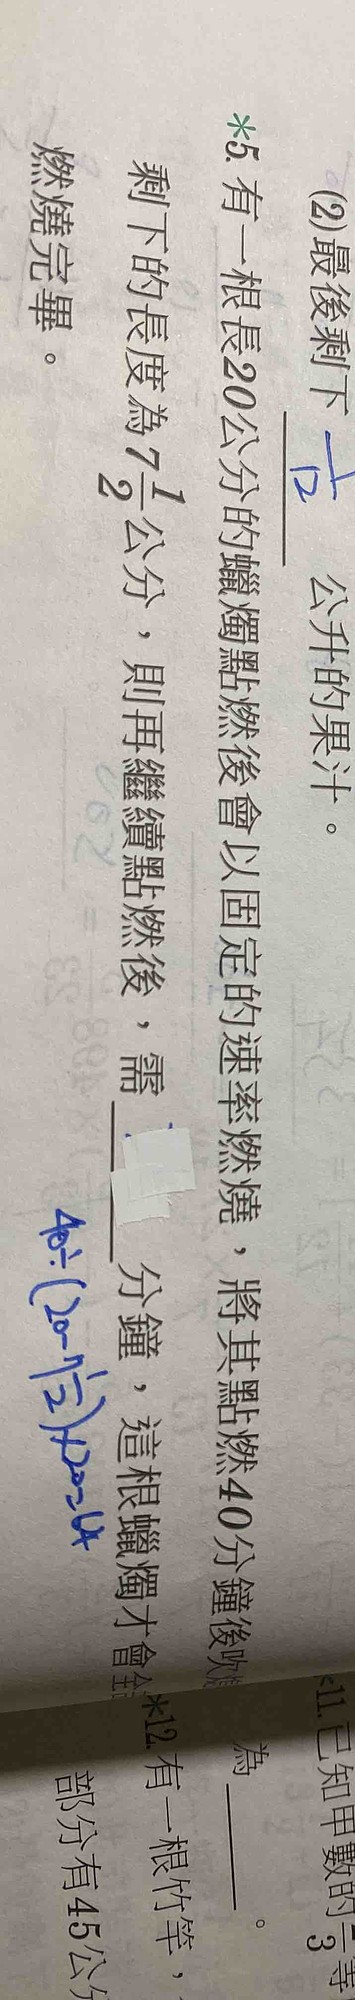 (2)最後剩下 1/12 公升的果汁。
*5. 有一根長20公分的蠟燭點燃後會以固定的速率燃燒，將其點燃40分鐘後吹
剩下的長度為7 1/2公分，則再繼續點燃後，需____分鐘，這根蠟燭才會全
燃燒完畢。
40÷(20-7 1/2)×20=64
11.已知甲數的 /3等
為____。
*12. 有一根竹竿，
部分有45公分